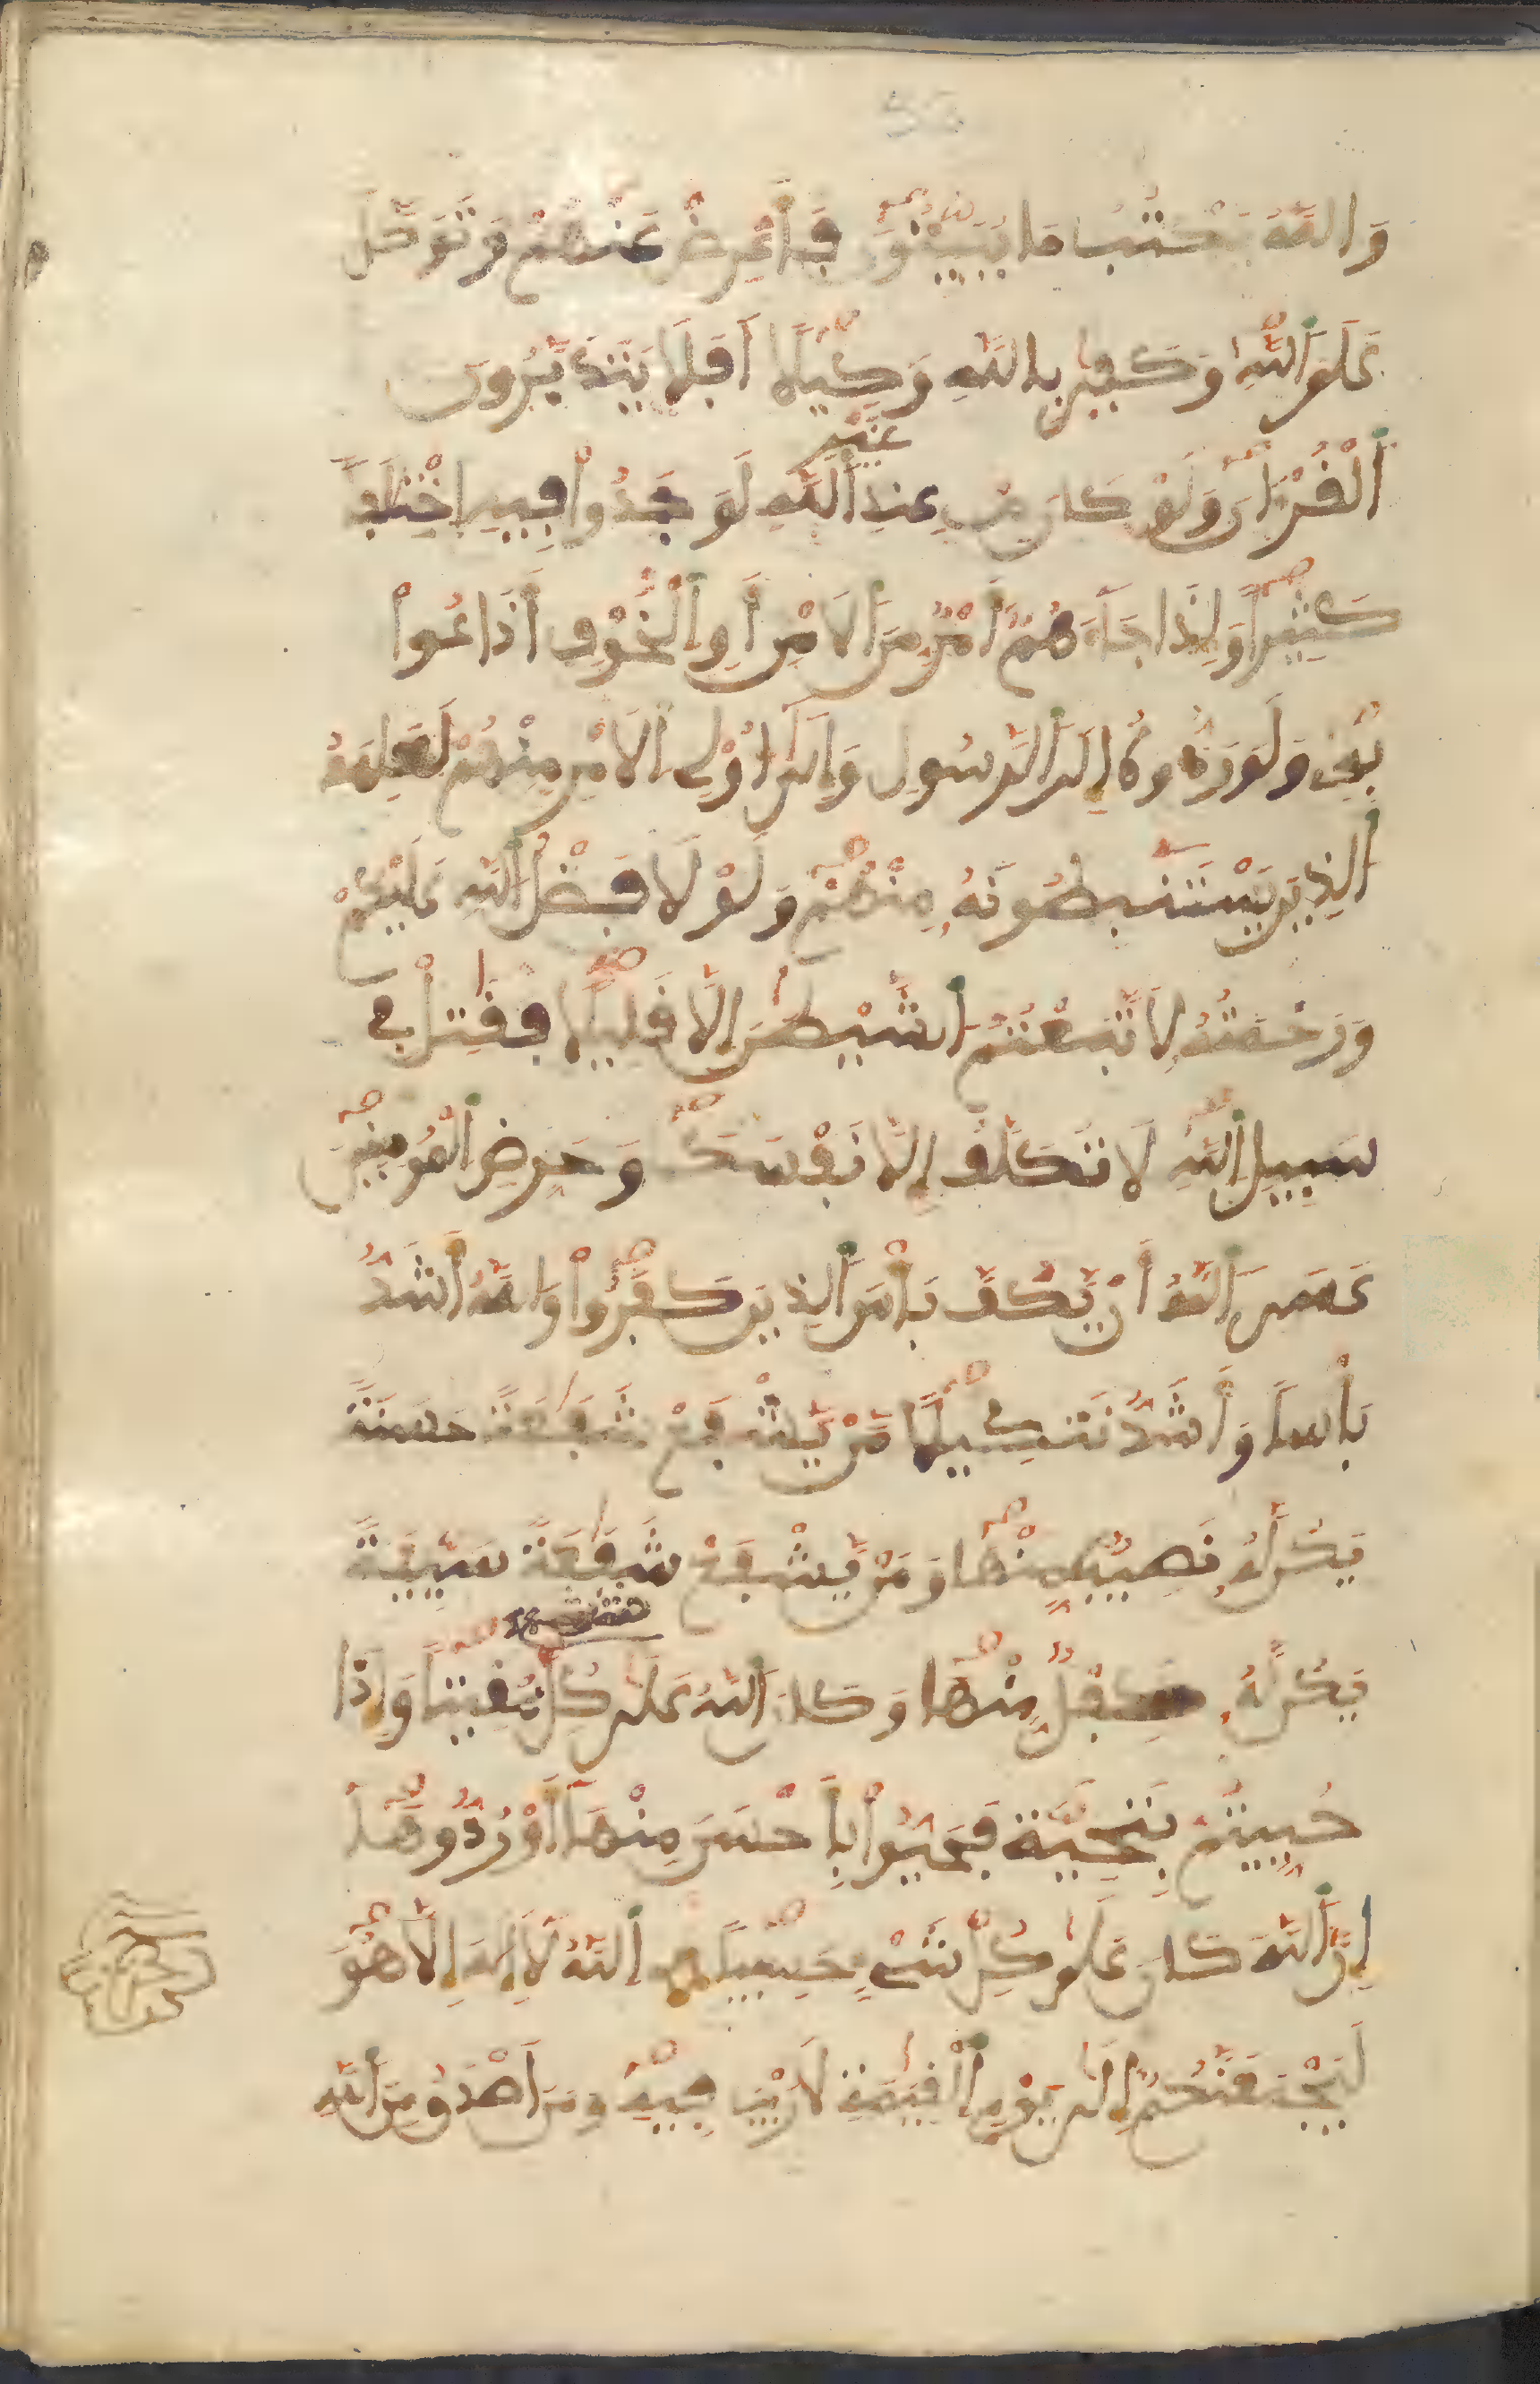 53
وَاللَّهُ يَكْتُبُ مَا يُبَيِّتُونَ فَأَعْرِضْ عَنْهُمْ وَتَوَكَّلْ
عَلَى اَللَّهِ وَكَفِىٰ بِاللَّهِ وَكِيلًا أَفَلَا يَتَدَبَّرُونَ
اَلْقُرْءَانَ وَلَوْ كَانَ مِنْ عِندِ اَللَّهِ لَوَجَدُوا فِيهِ اِخْتِلَٰفاً
غَيْرِ
كَثِيراً وَإِذَا جَآءَهُمْ أَمْرٌ مِّنَ اَلَامْنِ أَوِ اِلْخَوْفِ أَذَاعُوا
بِهِ وَلَوْ رَدُّوهُ إِلَى اَلرَّسُولِ وَإِلَىٰ أُوْلِى اِلَامْرِ مِنْهُمْ لَعَلِمَهُ
اَلذِينَ يَسْتَنبِطُونَهُ مِنْهُمْ وَلَوْلَا فَضْلُ اُللَّهِ عَلَيْكُمْ
وَرَحْمَتُهُ لَاتَّبَعْتُمُ اُلشَّيْطَٰنَ إِلَّا قَلِيلًا فَقَٰتِلْ فِے
سَبِيلِ اِللَّهِ لَا تُكَلَّفُ إِلَّا نَفْسَكَ وَحَرِّضِ اِلْمُومِنِينَ
عَسَى اَللَّهُ أَنْ يَّكُفَّ بَأْسَ اَلذِينَ كَفَرُوا وَاللَّهُ أَشَدُّ
بَأْساً وَأَشَدُّ تَنكِيلًا مَّنْ يَّشْفَعْ شَفَٰعَةً حَسَنَةً
يَكُن لَّهُ نَصِيبٌ مِّنْهَا وَمَنْ يَّشْفَعْ شَفَٰعَةً سَيِّئَةً
يَكُن لَّهُ كِفْلٌ مِّنْهَا وَكَانَ اَللَّهُ عَلَىٰ كُلِّ مُّقِيتاً وَإِذَا
شَےْءٍ
حُيِّيتُم بِتَحِيَّةٍ فَحَيُّوا بِأَحْسَنَ مِنْهَا أَوْ رُدُّوهَا
إِنَّ اَللَّهَ كَانَ عَلَىٰ كُلِّ شَےْءٍ حَسِيباً اَللَّهُ لَا إِلَٰهَ إِلَّا هُوَ
لَيَجْمَعَنَّكُمُ إِلَىٰ يَوْمِ اِلْقِيَٰمَةِ لَا رَيْبَ فِيهِ وَمَنَ اَصْدَقُ مِنَ اَللَّهِ